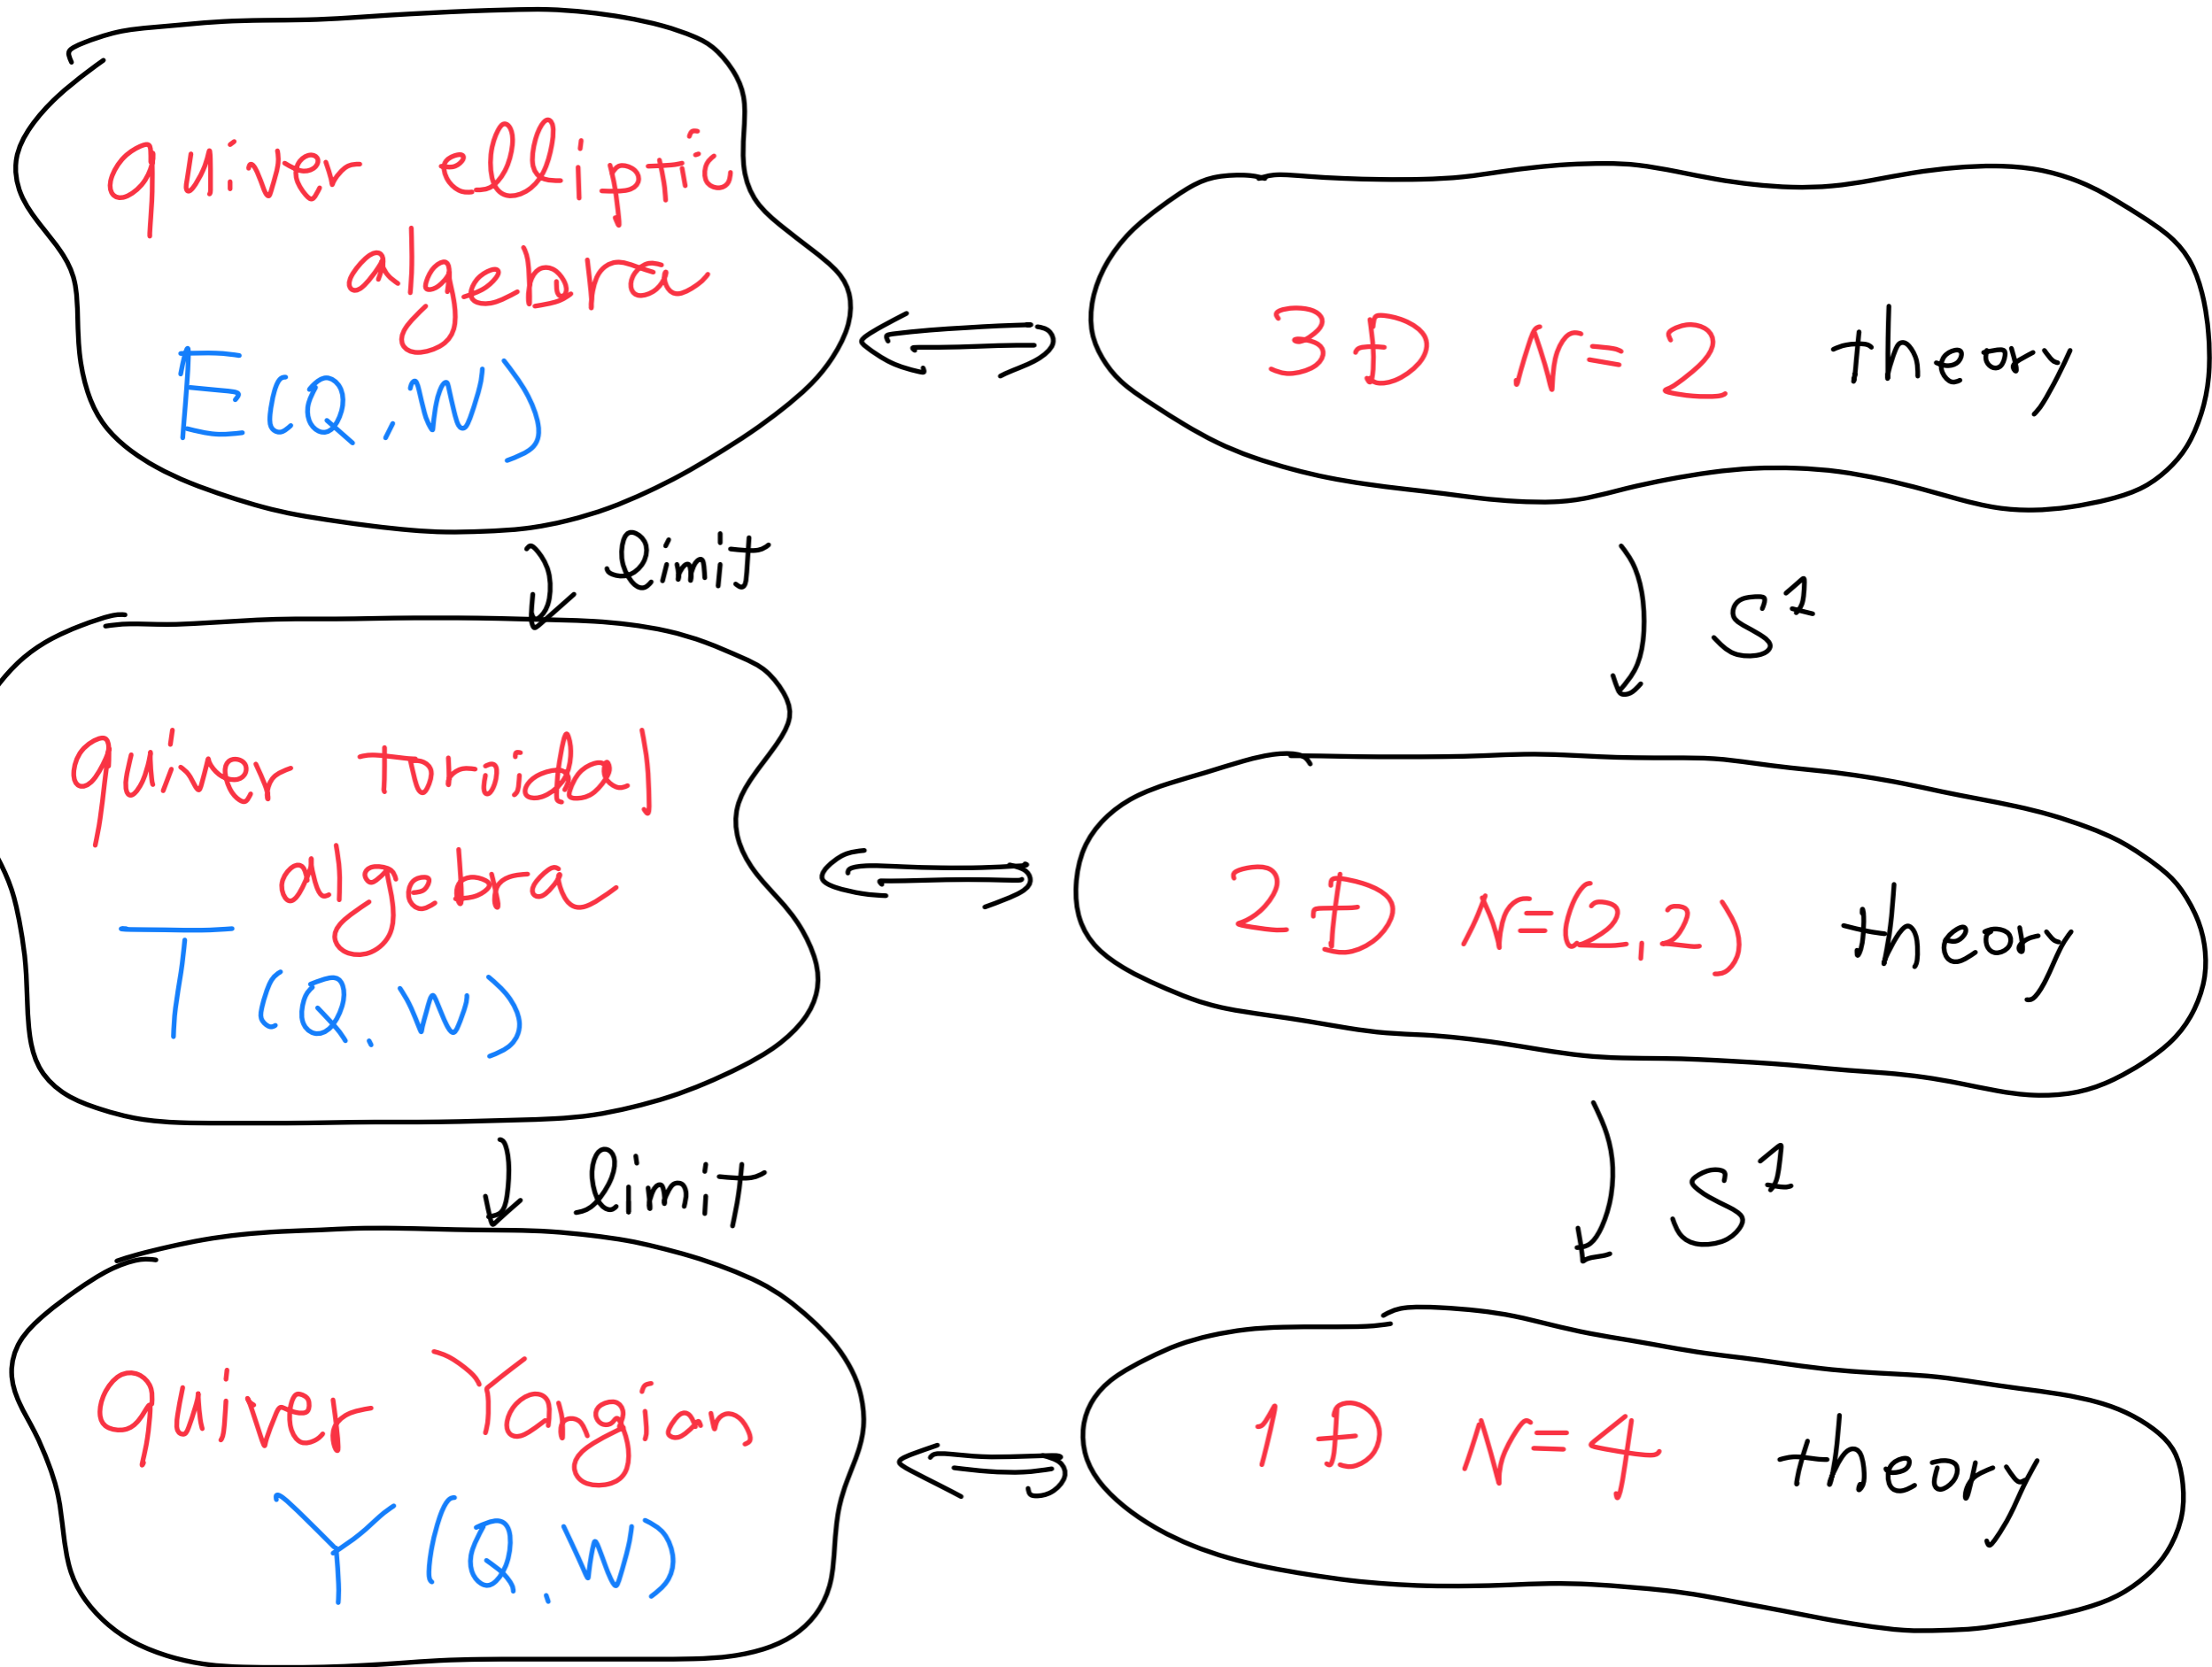 quiver elliptic
algebra
E(Q, W)
3D N=2 theory
limit
S¹
quiver toroidal
algebra
T(Q, W)
2D N=(2,2) theory
limit
S¹
quiver Yangian
Y(Q, W)
1D N=4 theory